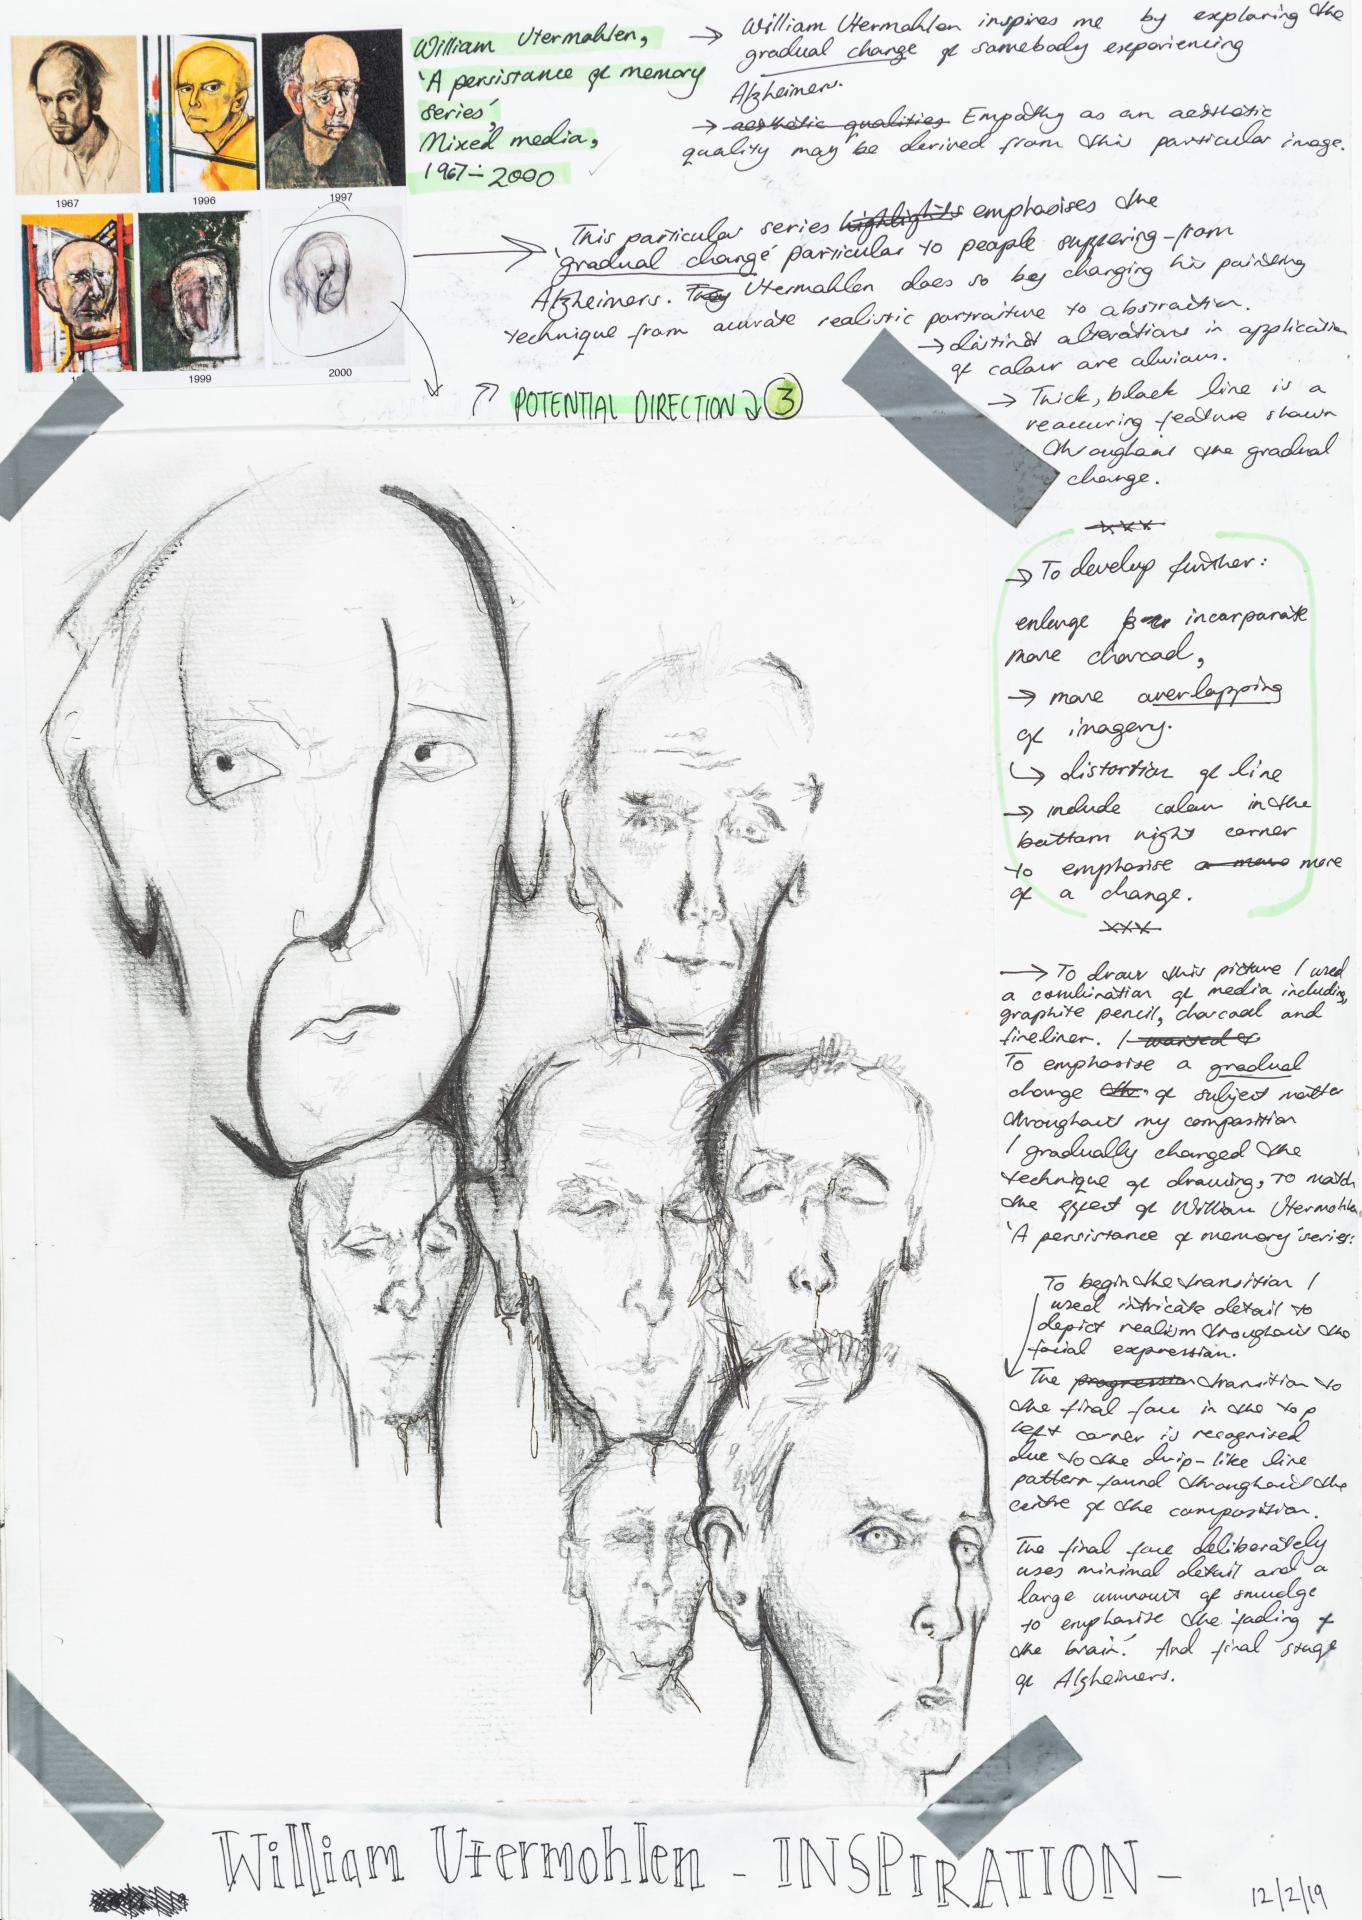 William Utermohlen,
'A persistance of memory
series',
Mixed media,
1967–2000
1967
1996
1997
1999
2000
→ William Utermohlen inspires me by exploring the
gradual change of somebody experiencing
Alzheimers.
→ aesthetic qualities Empathy as an aesthetic
quality may be derived from this particular image.
This particular series highlights emphasises the
'gradual change' particular to people suffering from
Alzheimers. They Utermohlen does so by changing his painting
technique from accurate realistic portraiture to abstraction.
→ distinct alterations in application
of colour are obvious.
→ Thick, black line is a
reaccuring feature shown
throughout the gradual
change.
POTENTIAL DIRECTION 3
xxx
→ To develop further:
enlarge incorporate
more charcoal,
→ more overlapping
of imagery.
↳ distortion of line
→ include colour in the
bottom right corner
to emphasise a more more
of a change.
xxx
→ To draw this picture I used
a combination of media including,
graphite pencil, charcoal and
fineliner. I wanted to
To emphasise a gradual
change of subject matter
throughout my composition
I gradually changed the
technique of drawing, to match
the effect of William Utermohlen
'A persistance of memory' series:
To begin the transition I
used intricate detail to
depict realism throughout the
facial expression.
The progression transition to
the final face in the top
left corner is recognised
due to the drip-like line
pattern found throughout the
centre of the composition.
The final face deliberately
uses minimal detail and a
large ammount of smudge
to emphasise the 'fading of
the brain'. And final stage
of Alzheimers.
William Utermohlen - INSPIRATION -
12/2/19